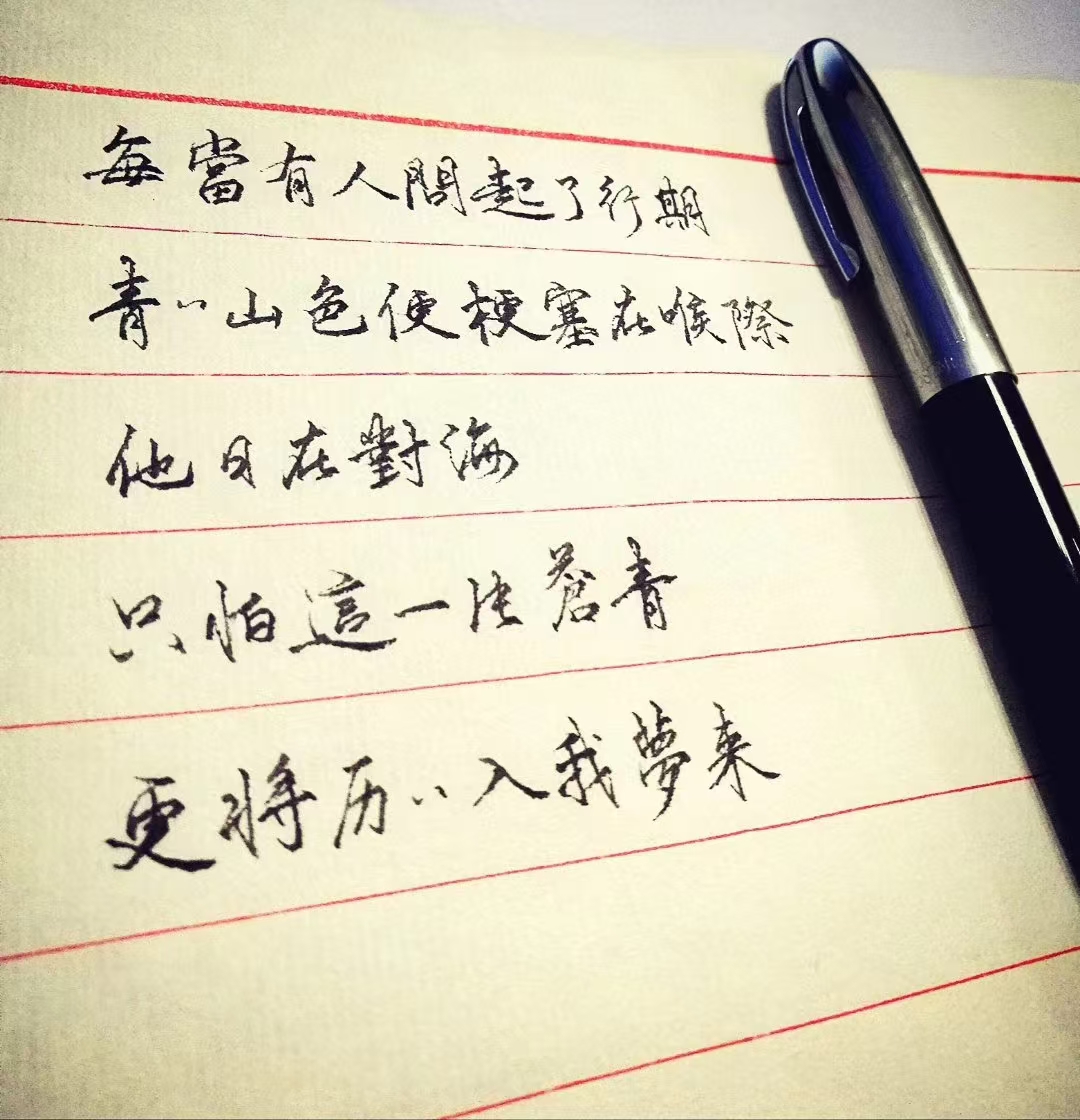 每當有人問起了行期
青〃山色便梗塞在喉際
他日在對海
只怕這一片蒼青
更將历〃入我夢來